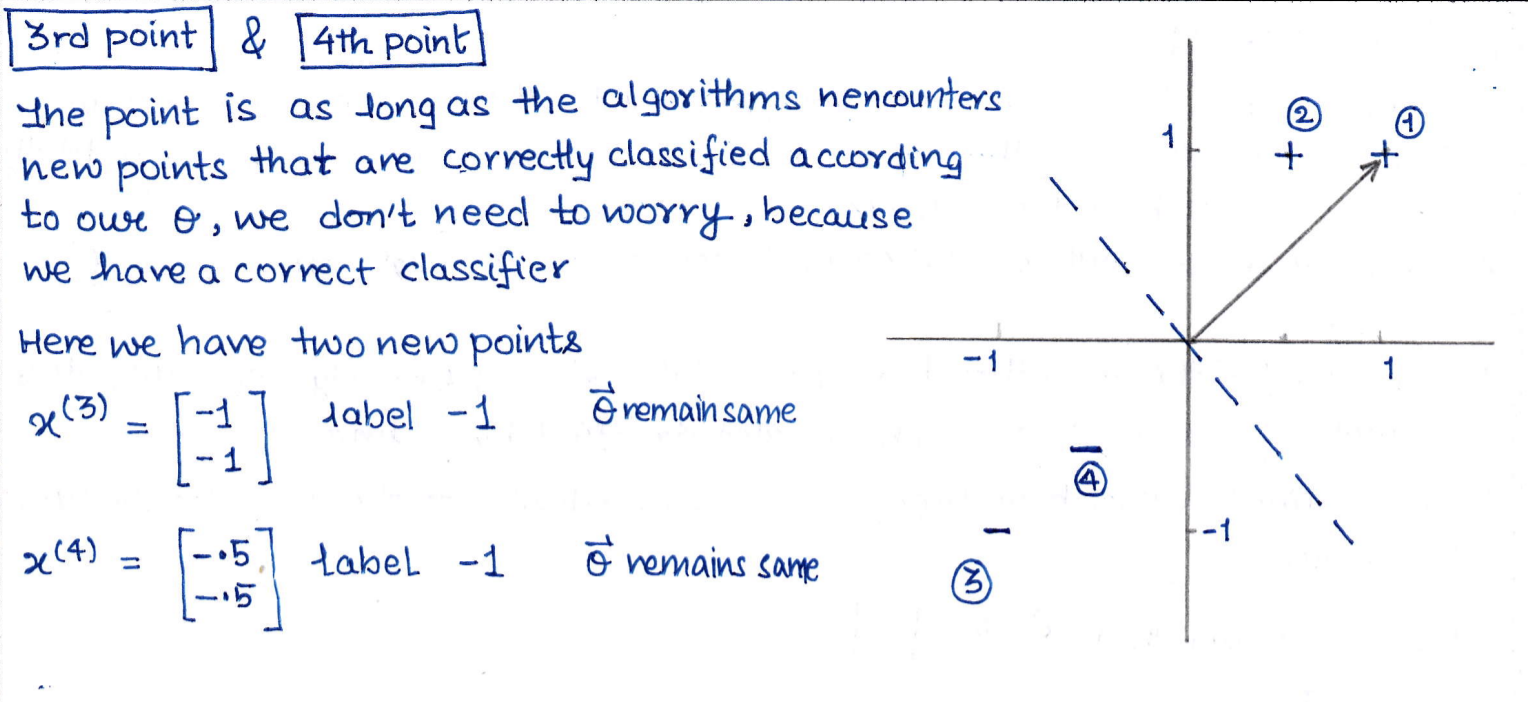 3rd point & 4th point
The point is as long as the algorithms nencounters
new points that are correctly classified according
to our θ, we don't need to worry, because
we have a correct classifier
Here we have two new points
x⁽³⁾ = [-1 -1] label -1 θ⃗ remain same
x⁽⁴⁾ = [-.5 -.5] label -1 θ⃗ remains same
② ①
1 + +
-1 1
-
④
- -1
③